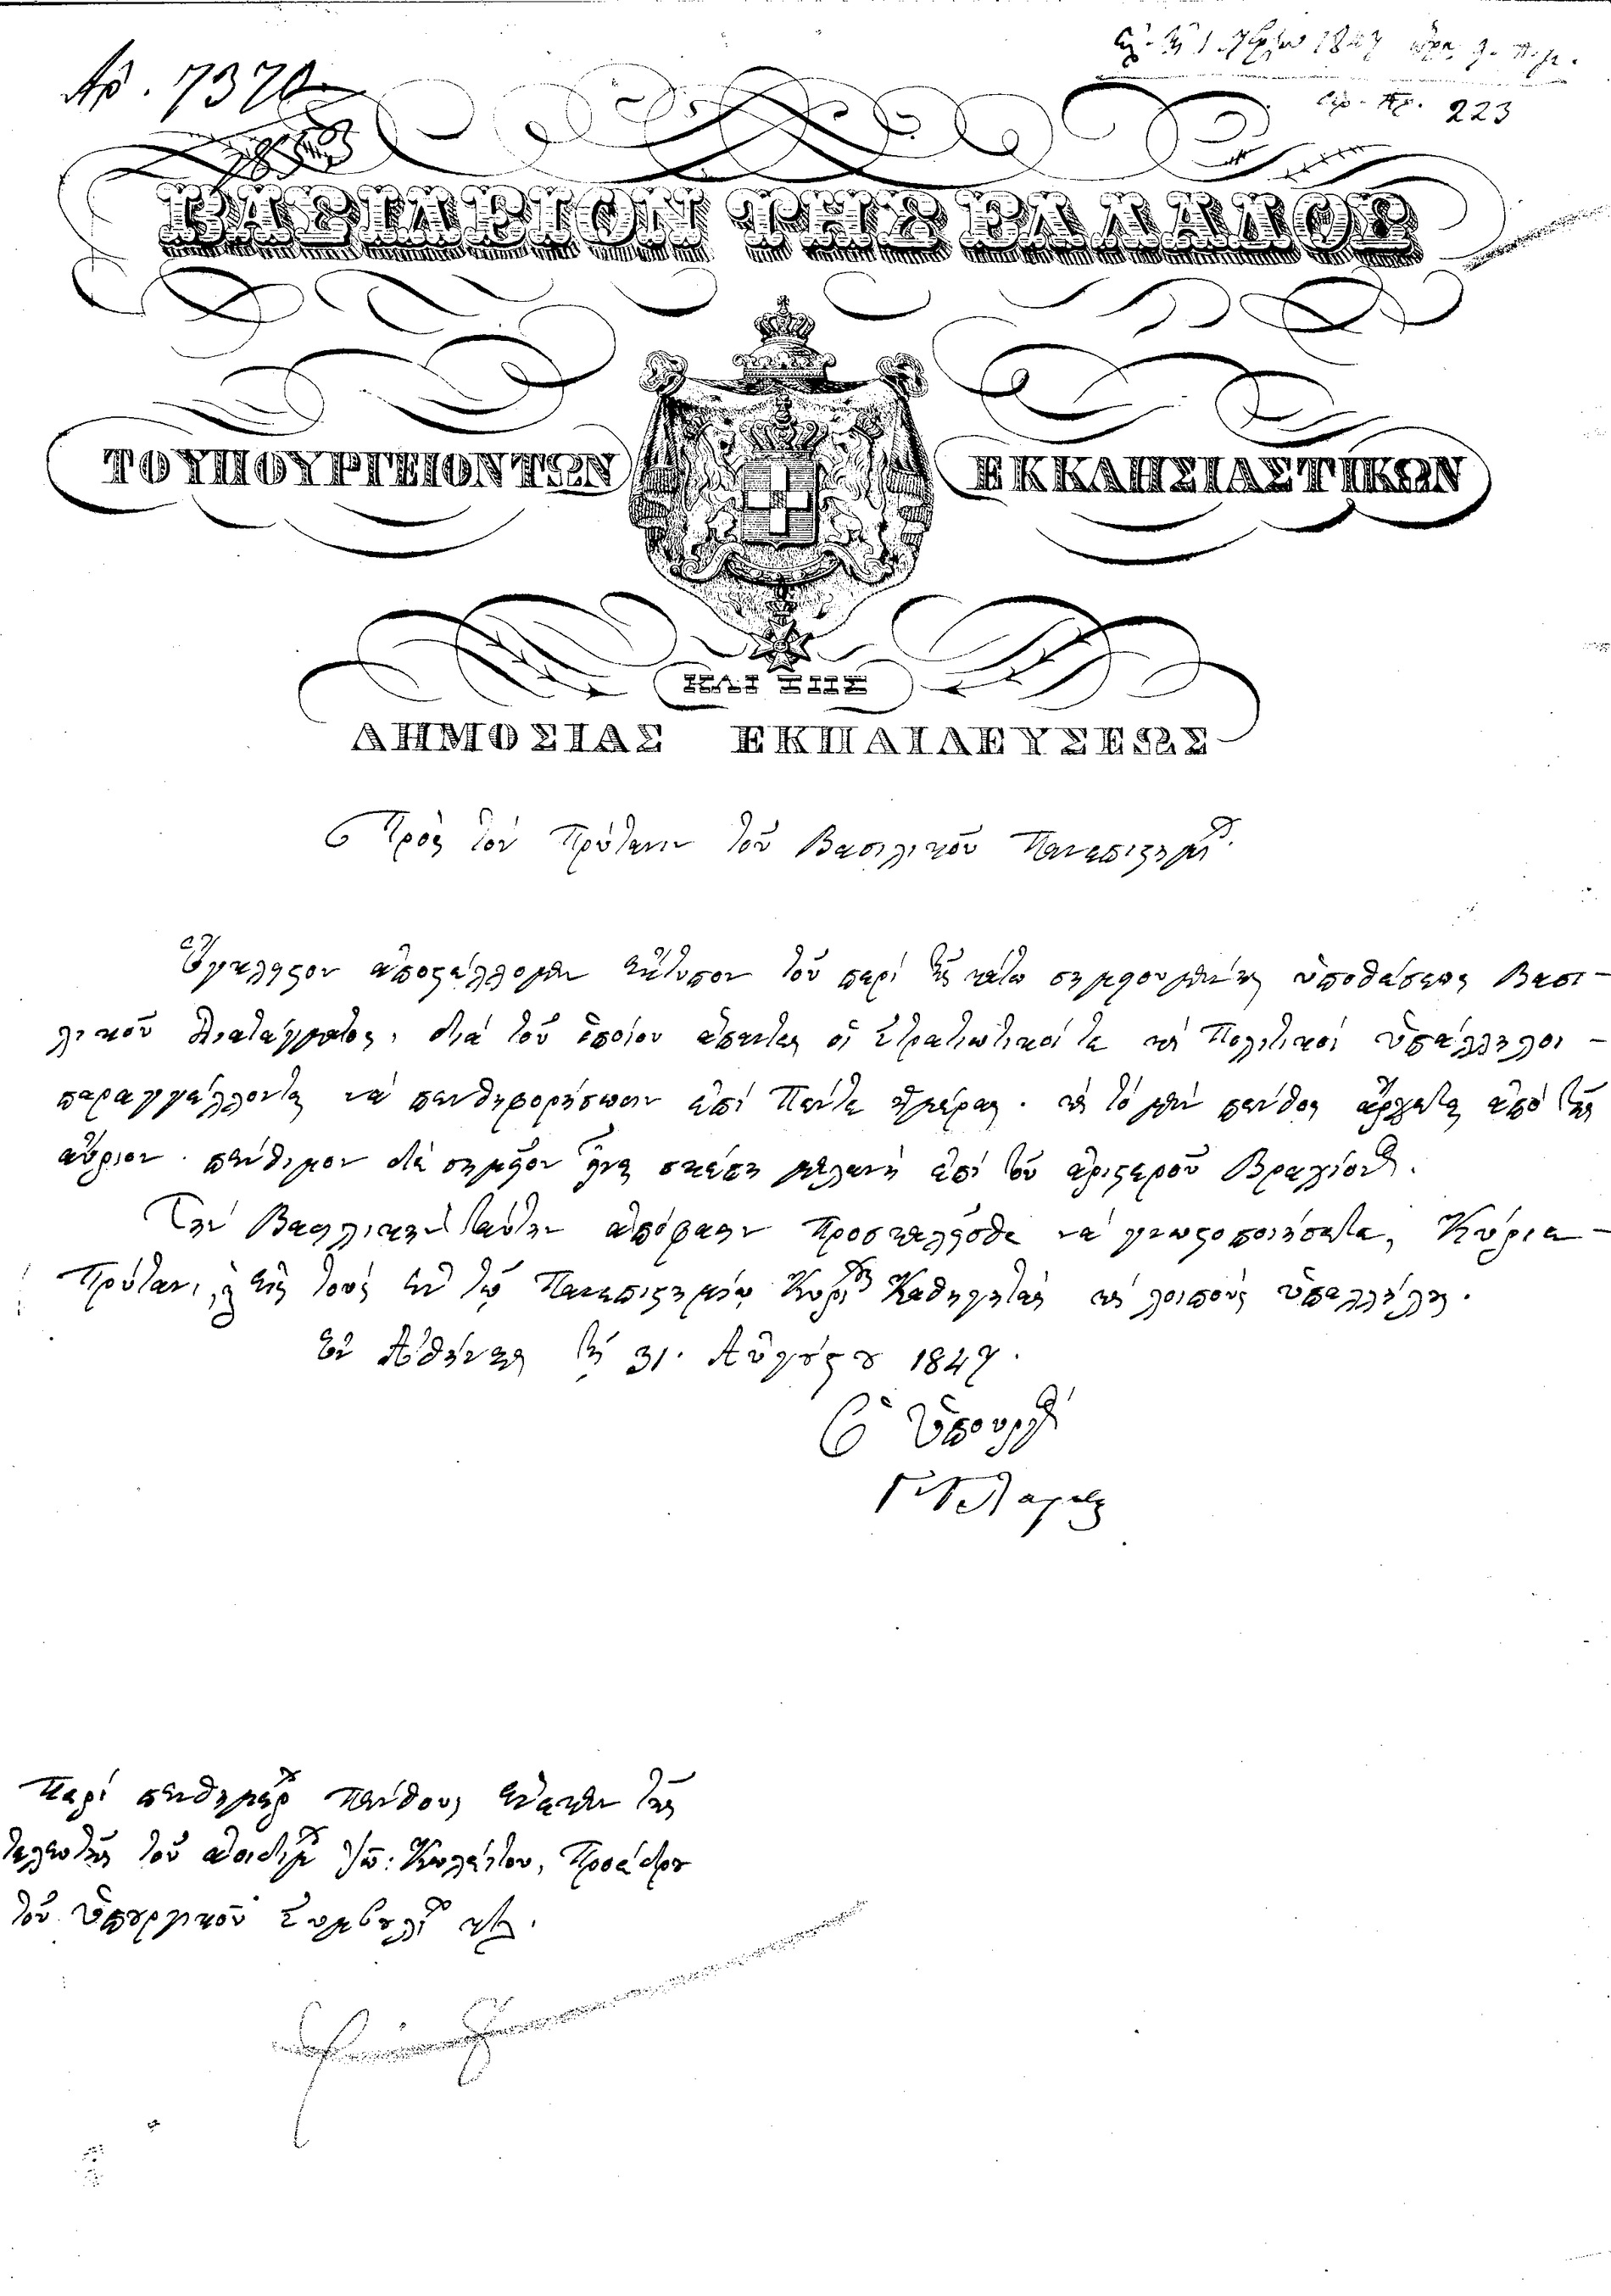 Ἀρ. 7370
1847 ὥρα 9. π.μ.
Ἀρ. Πρ. 223
ΒΑΣΙΛΕΙΟΝ ΤΗΣ ΕΛΛΑΔΟΣ
ΤΟ ΥΠΟΥΡΓΕΙΟΝ ΤΩΝ ΕΚΚΛΗΣΙΑΣΤΙΚΩΝ
ΚΑΙ ΤΗΣ
ΔΗΜΟΣΙΑΣ ΕΚΠΑΙΔΕΥΣΕΩΣ
Πρὸς τὸν Πρύτανιν τοῦ Βασιλικοῦ Πανεπιστημίου.
Ἔγκλειστον ἀποστέλλομεν ἔκτυπον τοῦ περὶ τῆς κάτω σημειουμένης ὑποθέσεως Βασι-
λικοῦ Διατάγματος, διὰ τοῦ ὁποίου ἅπαντες οἱ Στρατιωτικοί τε καὶ Πολιτικοὶ ὑπάλληλοι
παραγγέλλονται νὰ πενθηφορήσωσιν ἐπὶ Πέντε ἡμέρας. καὶ τὸ μὲν πένθος ἄρχεται ἀπὸ τῆς
αὔριον. πένθιμον δὲ σημεῖον εἶναι σκέπη μελανὴ ἐπὶ τοῦ ἀριστεροῦ Βραχίονος.
Τὴν Βασιλικὴν ταύτην ἀπόφασιν προσκαλεῖσθε νὰ γνωστοποιήσητε, Κύριε
Πρύτανι, εἰς τοὺς ἐν τῷ Πανεπιστημίῳ Κυρίους Καθηγητὰς καὶ λοιποὺς ὑπαλλήλους.
Ἐν Ἀθήναις τῇ 31. Αὐγούστου 1847.
Ὁ Ὑπουργὸς
Γ. Γλαράκης
Περὶ πενθημέρου Πένθους ἕνεκεν τῆς
τελευτῆς τοῦ ἀοιδίμου Ἰω: Κωλέττου, Προέδρου
τοῦ Ὑπουργικοῦ Συμβουλίου κτλ.